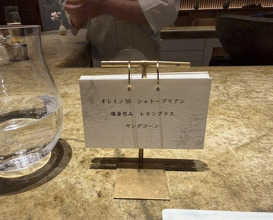 オレイン55 シャトーブリアン
塩釜包み レモングラス
ヤングコーン